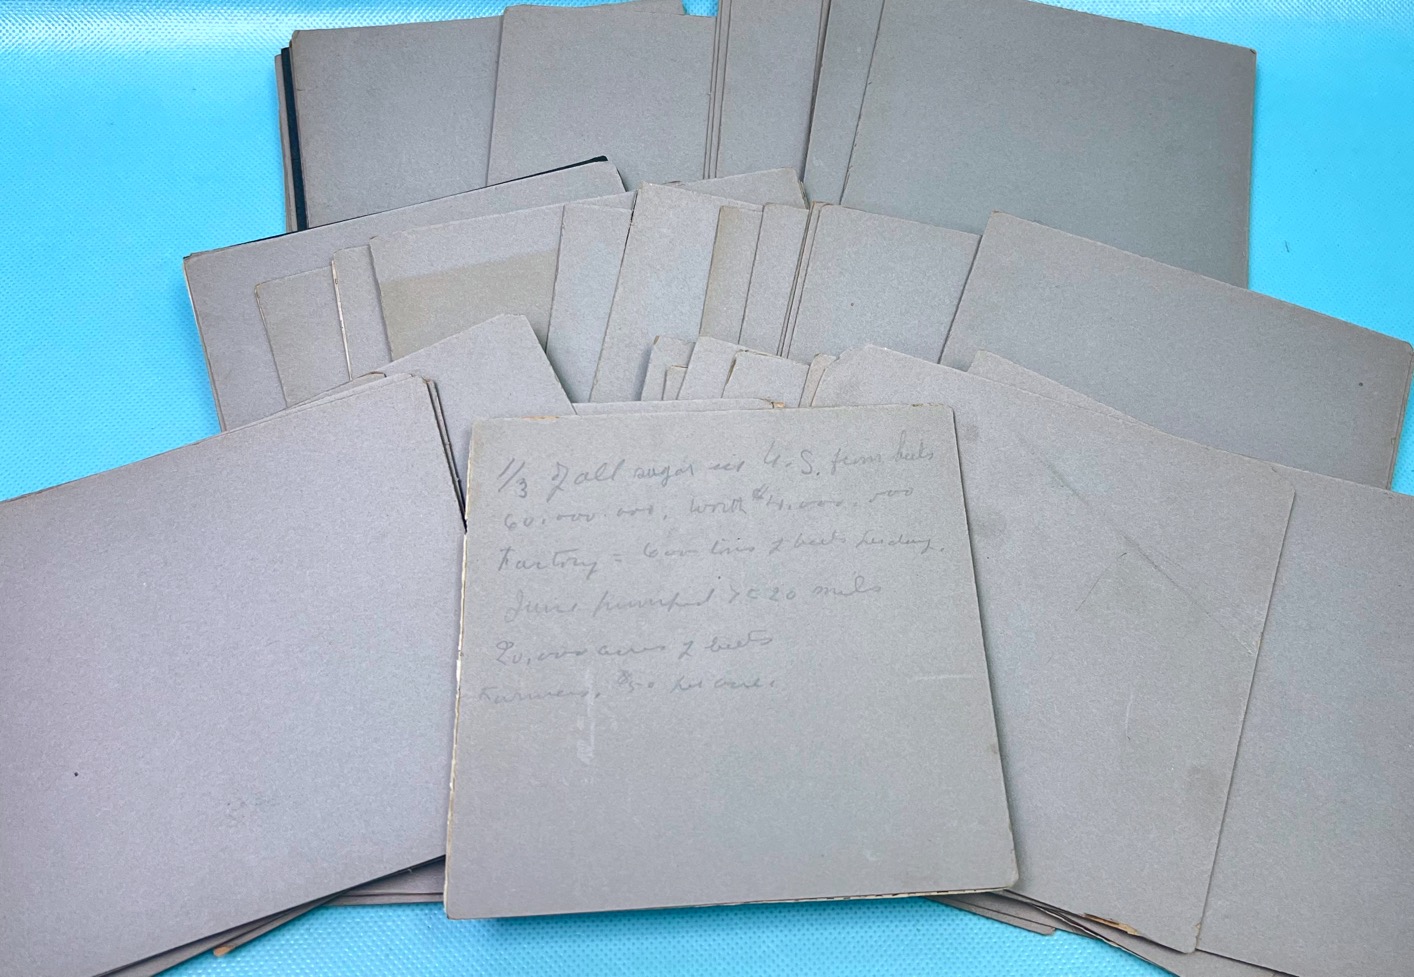 1/3 of all sugar in U.S. from beets
60,000,000, worth $4,000,000
Factory = 600 tons of beets per day.
Juice pumped 20 miles
20,000 acres of beets
Farmers, $50 per acre.